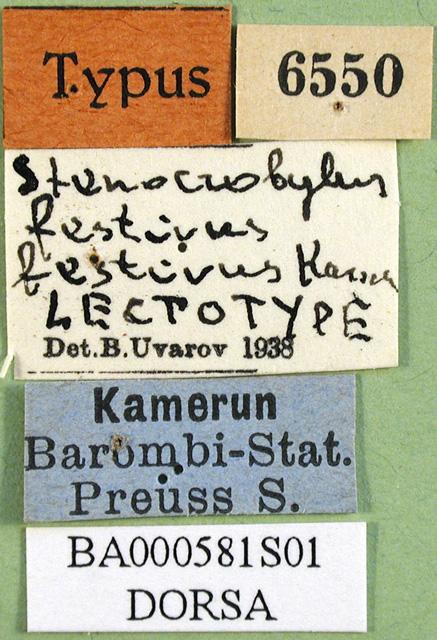 Typus
6550
Stenocrobylus
festivus
festivus Karsch
LECTOTYPE
Det. B. Uvarov 1938
Kamerun
Barombi-Stat.
Preuss S.
BA000581S01
DORSA